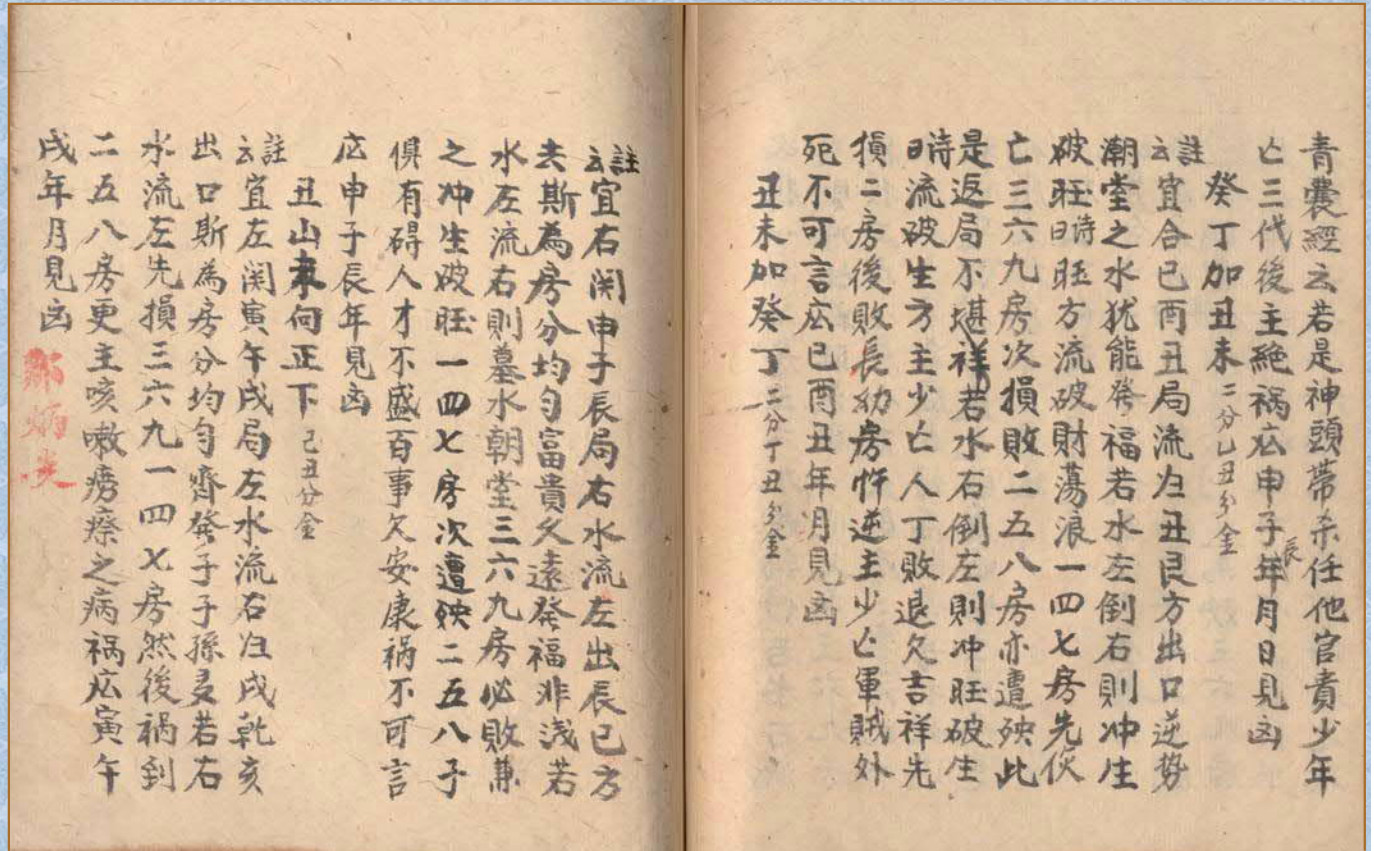 青囊經云若是神頭帶杀任他官貴少年
亡三代後主絶禍応申子辰年月日見凶
癸丁加丑未二分乙丑分金
註云宜合巳酉丑局流归丑艮方出口逆势
潮堂之水犹能發福若水左倒右則冲生
破旺時曰旺方流破財蕩浪一四七房先伙
亡三六九房次損敗二五八房亦遭殃此
是返局不堪祥若水右倒左則冲旺破生
時曰流破生方主少亡人丁敗退欠吉祥先
損二房後敗長幼房忤逆主少亡軍賊外
死不可言応巳酉丑年月見凶
丑未加癸丁二分丁丑分金
註云宜右関申子辰局右水流左出辰巳方
去斯為房分均匀富貴久遠發福非浅若
水左流右則墓水朝堂三六九房必敗兼
之冲生破旺一四七房次遭殃二五八子
俱有碍人才不盛百事欠安康禍不可言
応申子辰年見凶
丑山未向正下己丑分金
註云宜左関寅午戌局左水流右归戌乾亥
出口斯為房分均匀齊發子子孫爻若右
水流左先損三六九一四七房然後禍到
二五八房更主咳嗽癆瘵之病禍応寅午
戌年月見凶